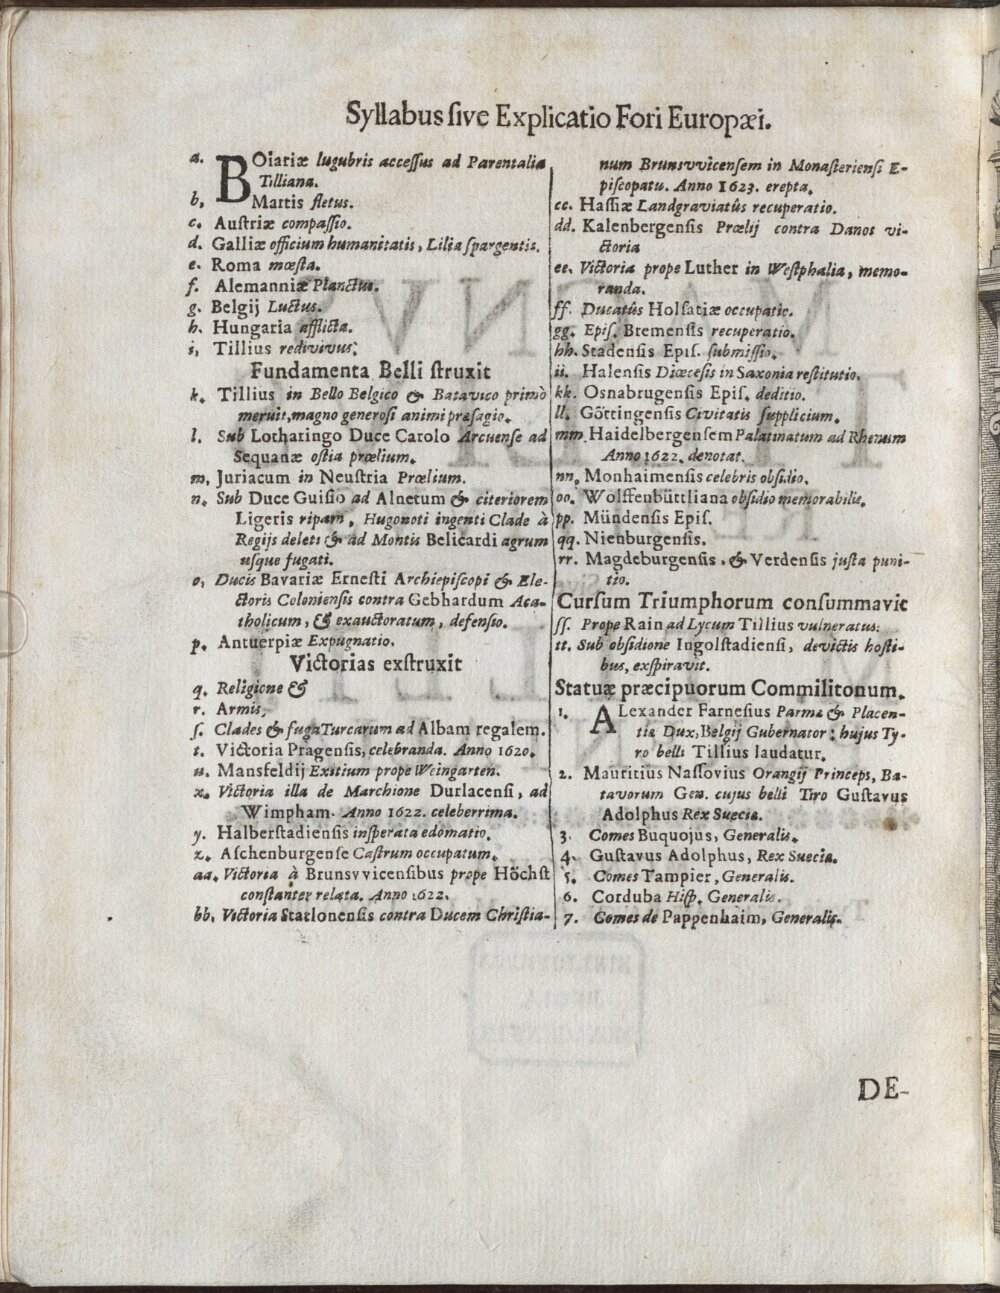 Syllabus sive Explicatio Fori Europæi.
a. BOiariæ lugubris accessus ad Parentalia
Tilliana.
b. Martis fletus.
c. Austriæ compassio.
d. Galliæ officium humanitatis, Lilia spargentis.
e. Roma mœsta.
f. Alemanniæ Planctus.
g. Belgij Luctus.
h. Hungaria afflicta.
i, Tillius redivivus.
Fundamenta Belli struxit
k. Tillius in Bello Belgico & Batavico primò
meruit, magno generosi animi præsagio.
l. Sub Lotharingo Duce Carolo Arcuense ad
Sequanæ ostia prœlium.
m, Juriacum in Neustria Prœlium.
n. Sub Duce Guisio ad Alnetum & citeriorem
Ligeris ripam, Hugonoti ingenti Clade à
Regijs deleti & ad Montis Belicardi agrum
usque fugati.
o, Ducis Bavariæ Ernesti Archiepiscopi & Ele-
ctoris Coloniensis contra Gebhardum Aca-
tholicum, & exauctoratum, defensio.
p. Antuerpiæ Expugnatio.
Victorias exstruxit
q. Religione &
r. Armis,
s. Clades & fuga Turcarum ad Albam regalem.
t. Victoria Pragensis, celebranda. Anno 1620.
u. Mansfeldij Exitium prope Weingarten.
x. Victoria illa de Marchione Durlacensi, ad
Wimpham. Anno 1622. celeberrima.
y. Halberstadiensis insperata edomatio.
z. Aschenburgense Castrum occupatum.
aa. Victoria à Brunsvvicensibus prope Höchst
constanter relata. Anno 1622.
bb. Victoria Statlonensis contra Ducem Christia-
num Brunsvvicensem in Monasteriensi E-
piscopatu. Anno 1623. erepta.
cc. Hassiæ Landgraviatûs recuperatio.
dd. Kalenbergensis Prœlij contra Danos vi-
ctoria
ee. Victoria prope Luther in Westphalia, memo-
randa.
ff. Ducatûs Holsatiæ occupatio.
gg. Epis. Bremensis recuperatio.
hh. Stadensis Epis. submissio.
ii. Halensis Diœcesis in Saxonia restitutio.
kk. Osnabrugensis Epis. deditio.
ll. Göttingensis Civitatis supplicium.
mm. Haidelbergensem Palatinatum ad Rhenum
Anno 1622. denotat.
nn, Monhaimensis celebris obsidio.
oo. Wolffenbüttliana obsidio memorabilis.
pp. Mündensis Epis.
qq. Nienburgensis.
rr. Magdeburgensis, & Verdensis justa puni-
tio.
Cursum Triumphorum consummavit
ss. Prope Rain ad Lycum Tillius vulneratus.
tt. Sub obsidione Ingolstadiensi, devictis hosti-
bus, exspiravit.
Statuæ præcipuorum Commilitonum.
1. ALexander Farnesius Parmæ & Placen-
tiæ Dux, Belgij Gubernator; hujus Ty-
ro belli Tillius laudatur.
2. Mauritius Nassovius Orangij Princeps, Ba-
tavorum Gen. cujus belli Tiro Gustavus
Adolphus Rex Sueciæ.
3. Comes Buquojus, Generalis.
4. Gustavus Adolphus, Rex Sueciæ.
5. Comes Tampier, Generalis.
6. Corduba Hisp. Generalis.
7. Comes de Pappenhaim, Generalis.
DE-